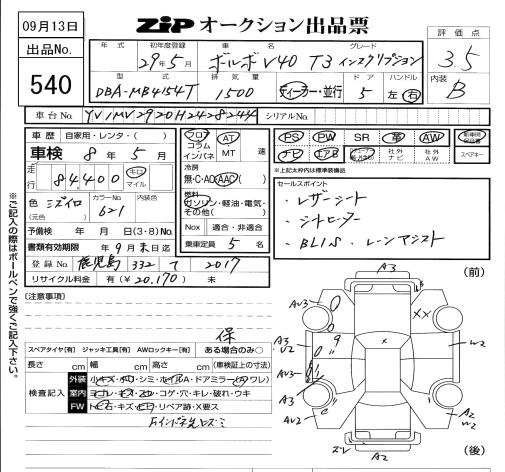 09月13日
出品No.
540
ZIP オークション出品票
評価点
3.5
内装
B
年式 初年度登録 車名 グレード
29年5月 ボルボ V40 T3 インスクリプション
型式 排気量 ドア ハンドル
DBA-MB4154T 1500 ディーラー・並行 5 左 右
車台No. YV1MV2920H2428244 シリアルNo.
車歴 自家用・レンタ・( )
車検 8年5月
走行 84,400 キロ マイル
色 (元色) カラーNo. 621 内装色
予備検 年 月 日(3・8)No.
書類有効期限 9月末日迄
登録No. 鹿児島 332 て 2017
リサイクル料金 有(¥20,170) 未
フロア コラム インパネ AT MT 速
冷房 無・C・AC・AAC( )
燃料 ガソリン・軽油・電気・その他( )
Nox 適合・非適合
乗車定員 5 名
PS PW SR 革 AW
ナビ エアB 社外ナビ 社外AW 新車時保証書 スペアキー
※上記太枠内は標準装備品
セールスポイント
・レザーシート
・シートヒーター
・BLIS ・レーンアシスト
(注意事項)
保
スペアタイヤ[有] ジャッキ工具[有] AWロックキー[有] ある場合のみ○
長さ cm 幅 cm 高さ cm (車検証上の寸法)
検査記入
外装 小キズ・ボコ・シミ・ホイルA・ドアミラー(A ワレ)
室内 ヨゴレ・キズ・スレ・コゲ・穴・キレ・破れ・ウキ
FW トビ石・キズ・ヒビ・リペア跡・X要ス
※ご記入の際はボールペンで強くご記入下さい。
(前)
A3
AU3
XX
A3
U2
9
X
W2
A3
AU2
A2
W2
A2
(後)